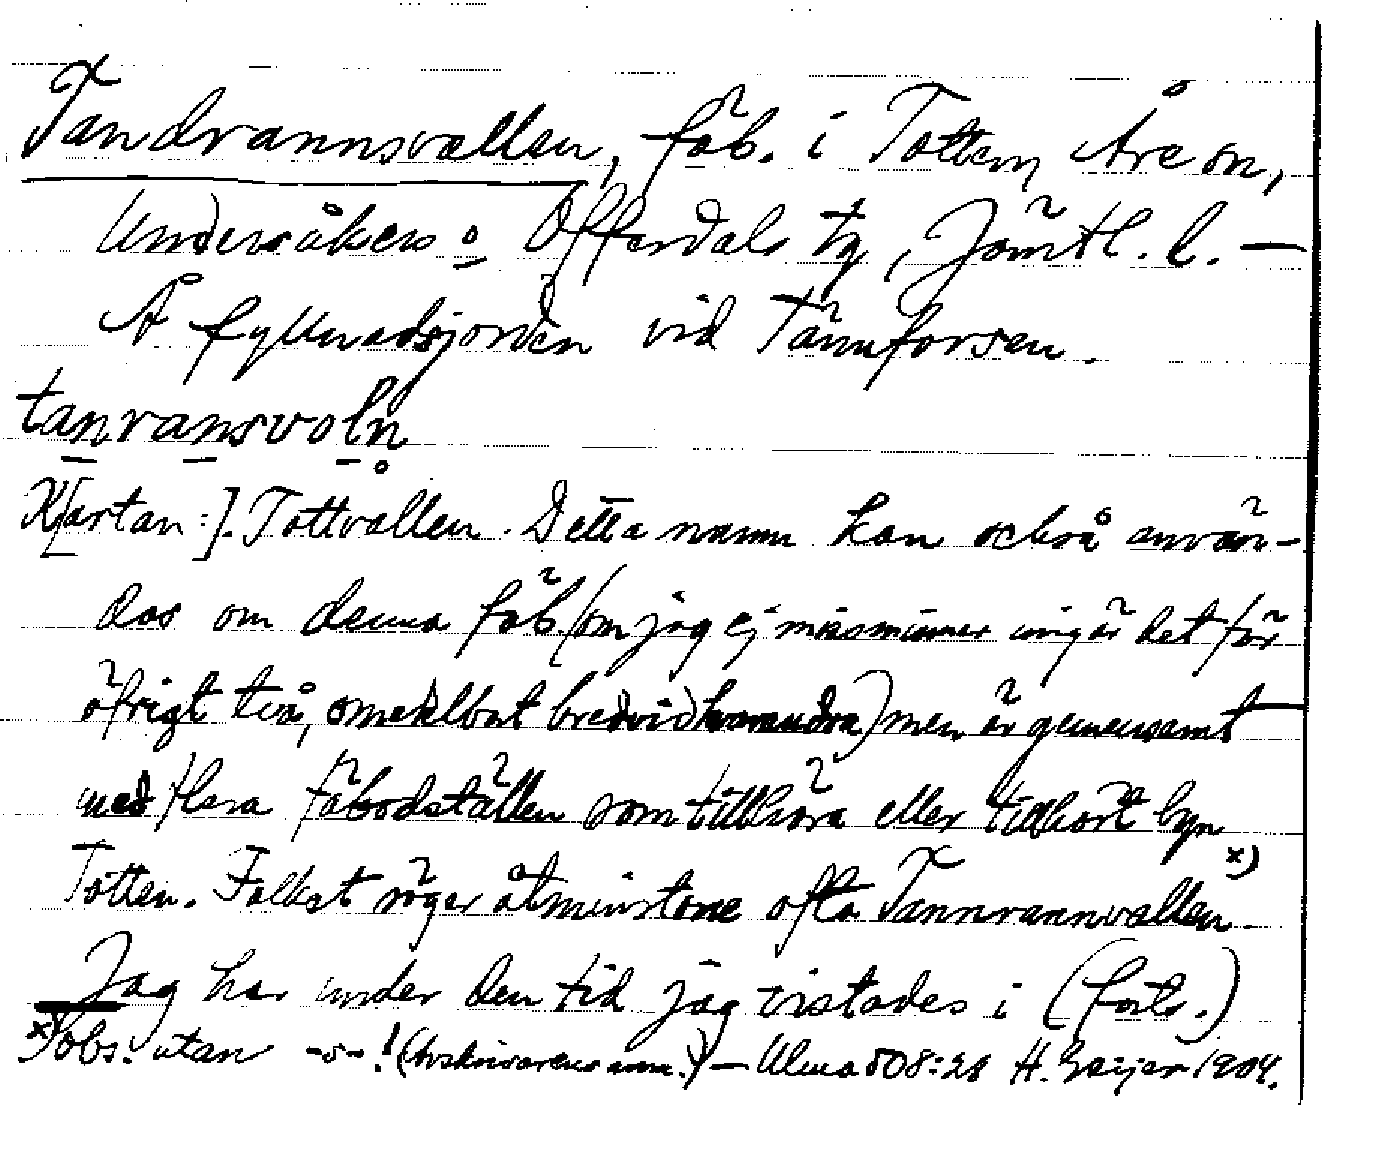 Tandrannsvallen, fäb. i Totten, Åre sn,
Undersåkers o Offerdals tg, Jämtl. l. —
Å fyllnadsjorden vid Tännforsen.
tanransvoln
K[artan:]. Tottvallen. Detta namn kan också använ-
das om denna fäb. (om jag ej missminner mig är det för
öfrigt två, omedelbart bredvid hvarandra) men är gemensamt
med flera fäbodställen som tillhöra eller tillhört byn
Totten. Folket säger åtminstone ofta Tannrannvallen x)
Jag har under den tid jag vistades i (forts.)
x) obs. utan -s-! (Avskrivarens anm.) — Ulma 808:28 H. Geijer 1904.